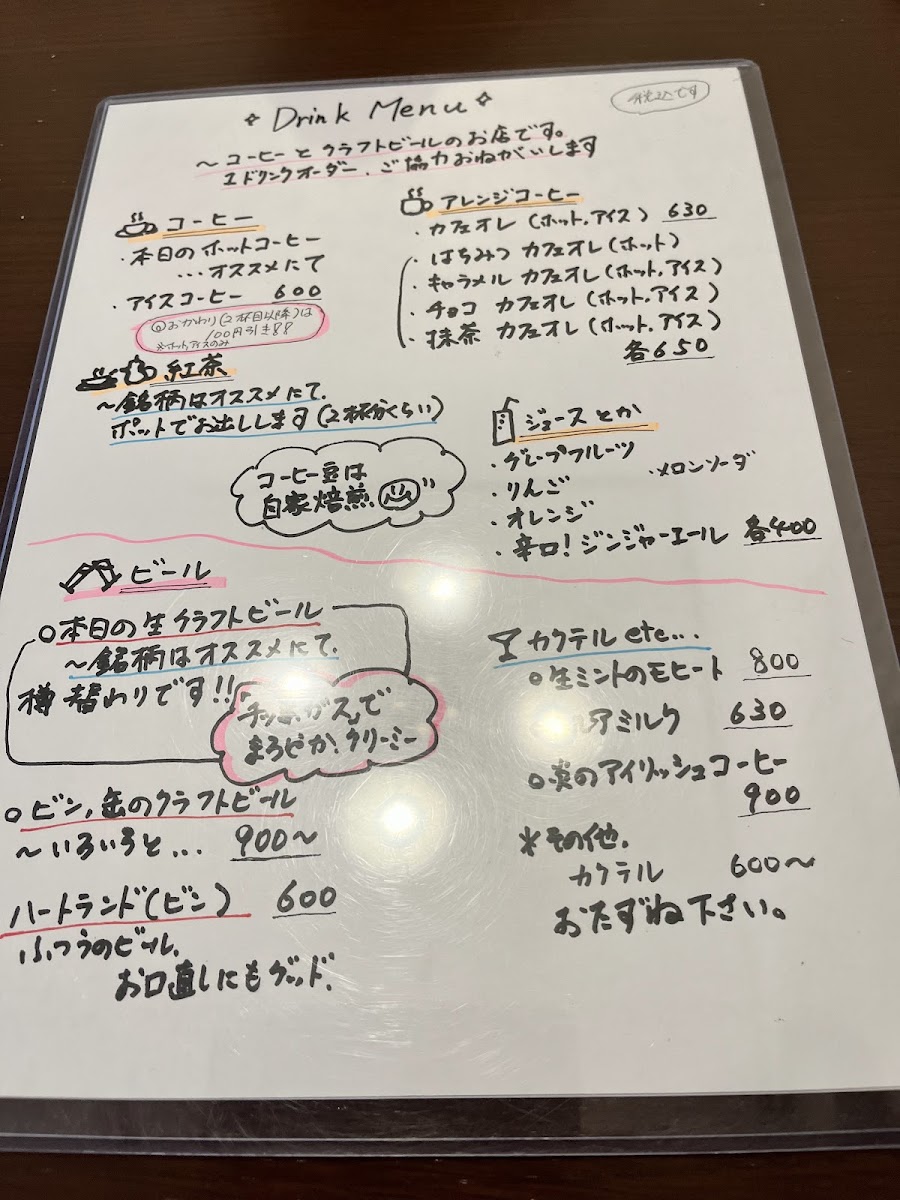 Drink Menu
税込です
～コーヒーとクラフトビールのお店です。
1ドリンクオーダー、ご協力おねがいします
コーヒー
・本日のホットコーヒー
...オススメにて
・アイスコーヒー 600
◎おかわり(2杯目以降)は
100円引き
※ホット,アイスのみ
紅茶
～銘柄はオススメにて.
ポットでお出しします(2杯分くらい)
コーヒー豆は
自家焙煎
アレンジコーヒー
・カフェオレ(ホット,アイス) 630
・はちみつ カフェオレ(ホット)
・キャラメル カフェオレ(ホット,アイス)
・チョコ カフェオレ(ホット,アイス)
・抹茶 カフェオレ(ホット,アイス)
各650
ジュースとか
・グレープフルーツ
・メロンソーダ
・りんご
・オレンジ
・辛口!ジンジャーエール 各400
ビール
○本日の生クラフトビール
～銘柄はオススメにて.
樽替わりです!!
ガス」で
まろやか、クリーミー
○ビン,缶のクラフトビール
～いろいろと... 900～
ハートランド(ビン) 600
ふつうのビール.
お口直しにもグッド.
カクテル etc...
○生ミントのモヒート 800
アミルク 630
○炎のアイリッシュコーヒー
900
*その他.
カクテル 600～
おたずね下さい。